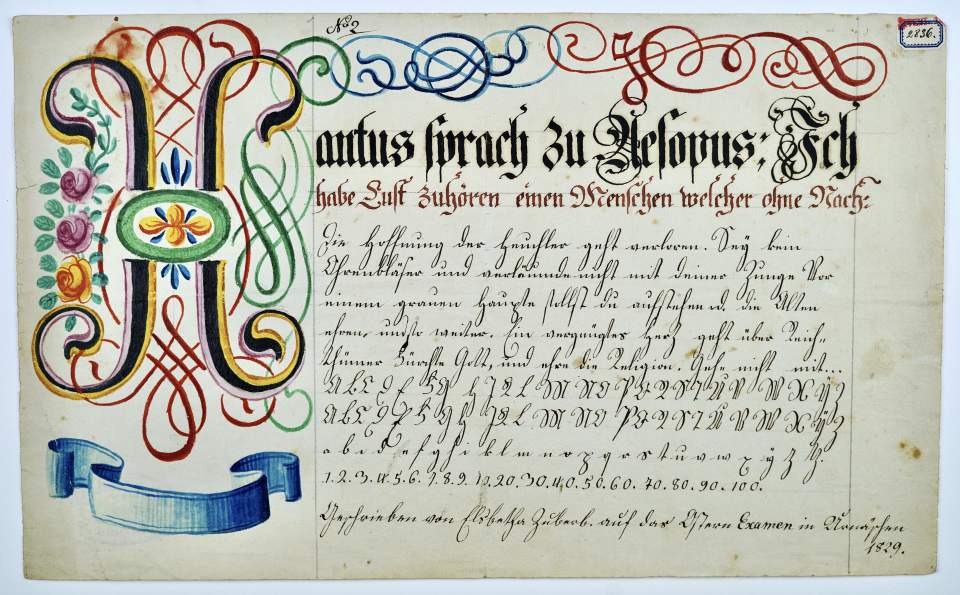 Nº 2
2836.
Xantus sprach zu Aesopus; Ich
habe Lust zuhören einen Menschen welcher ohne Nach=
Die Hoffnung der Heuchler geht verloren. Sey kein
Ohrenbläser und verläumde nicht mit deiner Zunge Vor
einem grauen Haupte sollst du aufstehen u. die Alten
ehren, und so weiter. Ein vergnügtes Herz geht über Reich=
thümer Fürchte Gott, und ehre die Religion. Gehe nicht mit...
A B C D E F G H J K L M N O P Q R S T U V W X Y Z
A B C D E F G H J K L M N O P Q R S T U V W X Y Z
a b c d e f g h i k l m n o p q r s t u v w x y z
1. 2. 3. 4. 5. 6. 7. 8. 9. 10. 20. 30. 40. 50. 60. 70. 80. 90. 100.
Geschrieben von Elsbetha Zuberb. auf das Ostern Examen in Urnäschen
1829.